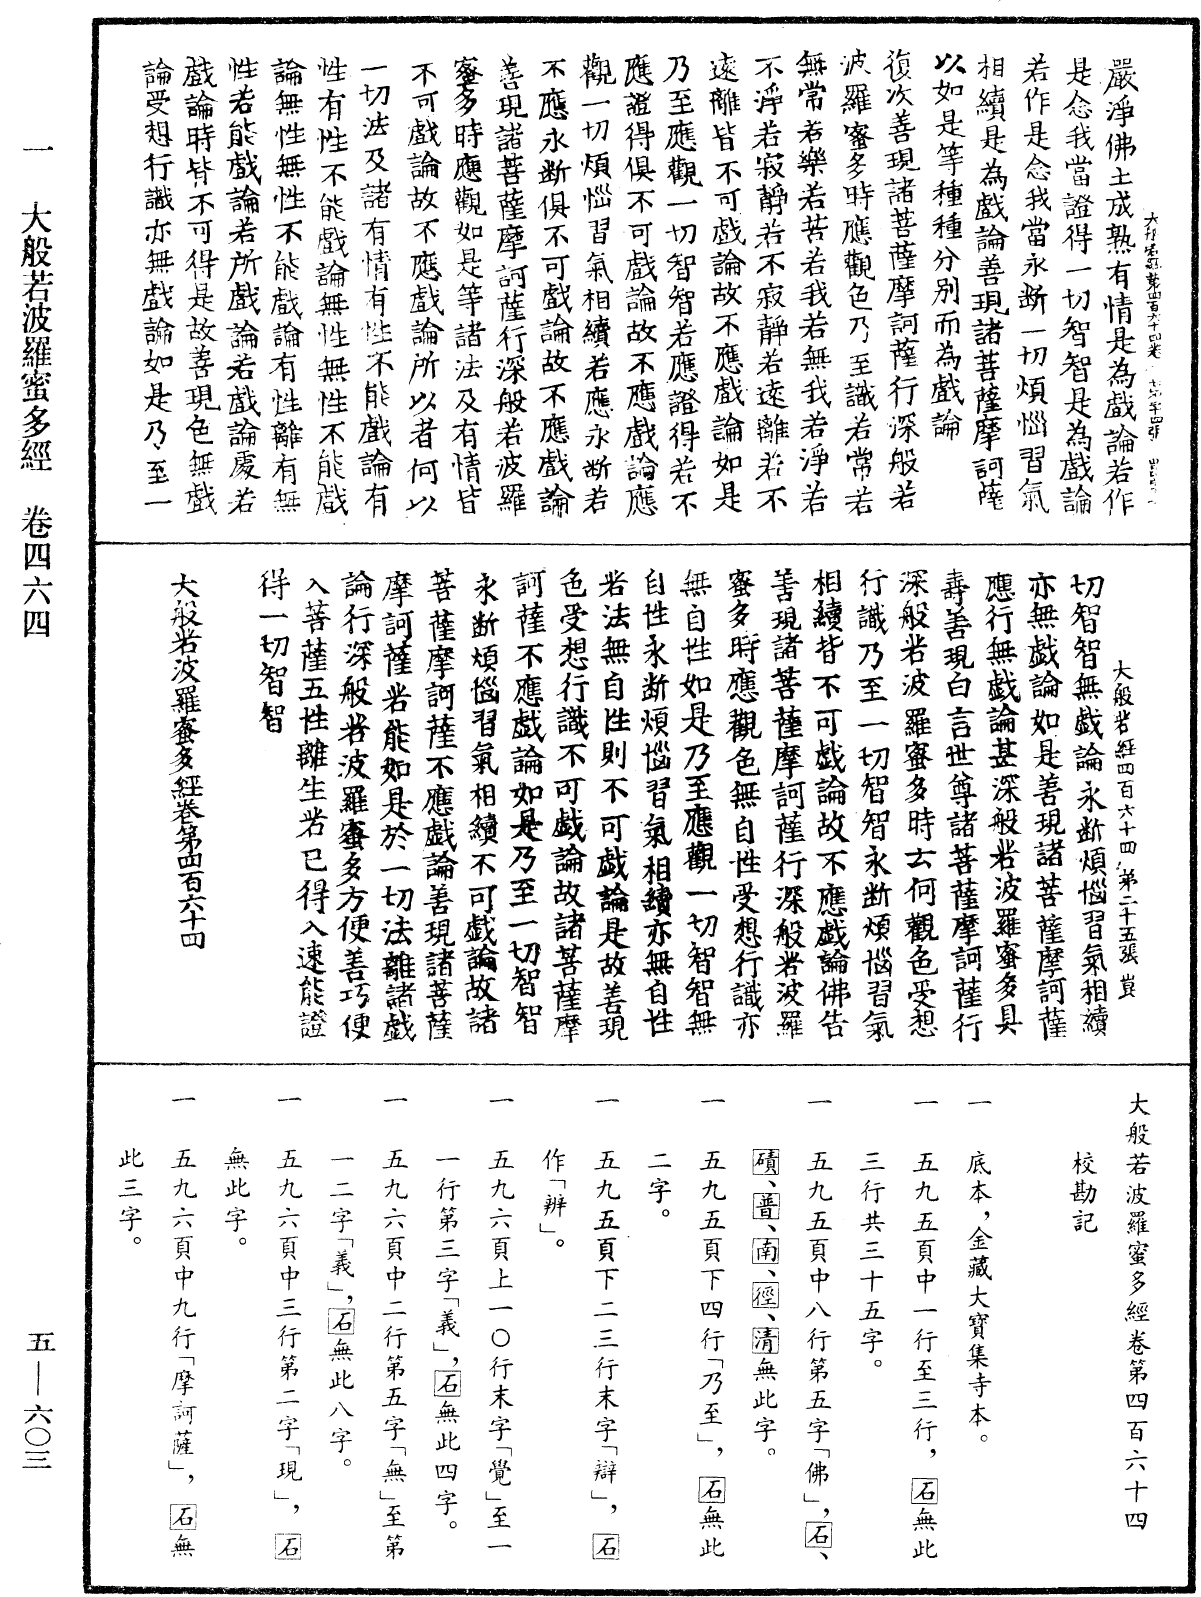 一　大般若波羅蜜多經　卷四六四
五—六〇三
嚴淨佛土成熟有情是為戲論若作
是念我當證得一切智智是為戲論
若作是念我當永斷一切煩惱習氣
相續是為戲論善現諸菩薩摩訶薩
以如是等種種分別而為戲論
復次善現諸菩薩摩訶薩行深般若
波羅蜜多時應觀色乃至識若常若
無常若樂若苦若我若無我若淨若
不淨若寂靜若不寂靜若遠離若不
遠離皆不可戲論故不應戲論如是
乃至應觀一切智智若應證得若不
應證得俱不可戲論故不應戲論應
觀一切煩惱習氣相續若應永斷若
不應永斷俱不可戲論故不應戲論
善現諸菩薩摩訶薩行深般若波羅
蜜多時應觀如是等諸法及有情皆
不可戲論故不應戲論所以者何以
一切法及諸有情有性不能戲論有
性有性不能戲論無性無性不能戲
論無性無性不能戲論有性離有無
性若能戲論若所戲論若戲論處若
戲論時皆不可得是故善現色無戲
論受想行識亦無戲論如是乃至一
大般若經四百六十四　第二十五張
切智智無戲論永斷煩惱習氣相續
亦無戲論如是善現諸菩薩摩訶薩
應行無戲論甚深般若波羅蜜多具
壽善現白言世尊諸菩薩摩訶薩行
深般若波羅蜜多時云何觀色受想
行識乃至一切智智永斷煩惱習氣
相續皆不可戲論故不應戲論佛告
善現諸菩薩摩訶薩行深般若波羅
蜜多時應觀色無自性受想行識亦
無自性如是乃至應觀一切智智無
自性永斷煩惱習氣相續亦無自性
若法無自性則不可戲論是故善現
色受想行識不可戲論故諸菩薩摩
訶薩不應戲論如是乃至一切智智
永斷煩惱習氣相續不可戲論故諸
菩薩摩訶薩不應戲論善現諸菩薩
摩訶薩若能如是於一切法離諸戲
論行深般若波羅蜜多方便善巧便
入菩薩五性離生若已得入速能證
得一切智智
大般若波羅蜜多經卷第四百六十四
大般若波羅蜜多經卷第四百六十四
校勘記
一　底本，金藏大寶集寺本。
一　五九五頁中一行至三行，石無此
三行共三十五字。
一　五九五頁中八行第五字「佛」，石、
磧、普、南、徑、清無此字。
一　五九五頁下四行「乃至」，石無此
二字。
一　五九五頁下二三行末字「辯」，石
作「辨」。
一　五九六頁上一〇行末字「覺」至一
一行第三字「義」，石無此四字。
一　五九六頁中二行第五字「無」至第
一二字「義」，石無此八字。
一　五九六頁中三行第二字「現」，石
無此字。
一　五九六頁中九行「摩訶薩」，石無
此三字。